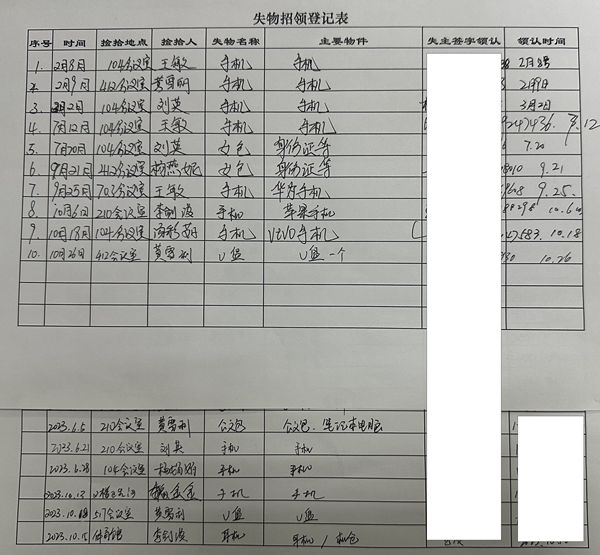 失物招领登记表
序号 时间 捡拾地点 捡拾人 失物名称 主要物件 失主签字领认 领认时间
1. 2月8日 104会议室 王敏 手机 手机 2月8号
2. 2月9日 412会议室 黄雪刚 手机 手机 2月9日
3. 3月2日 104会议室 刘英 手机 手机 3月2日
4. 7月12日 104会议室 王敏 手机 手机 7.12
5. 7月20日 104会议室 刘英 女包 身份证等 7.20
6. 9月21日 412会议室 杨燕妮 女包 身份证等 9.21
7. 9月25日 703会议室 王敏 手机 华为手机 9.25.
8. 10月6日 210会议室 李剑波 手机 苹果手机 10.6
9. 10月18日 104会议室 手机 vivo手机 47583. 10.18
10. 10月26日 412会议室 黄雪利 U盘 U盘一个 10.26
2023.6.5 210会议室 黄雪利 公文包 公文包、笔记本电脑
2023.6.21 210会议室 刘英 手机 手机
2023.6.28 104会议室 手机 手机
2023.10.12 手机 手机
2023.10. 517会议室 黄雪利 U盘 U盘
2023.10.15 体育馆 李剑波 耳机 耳机